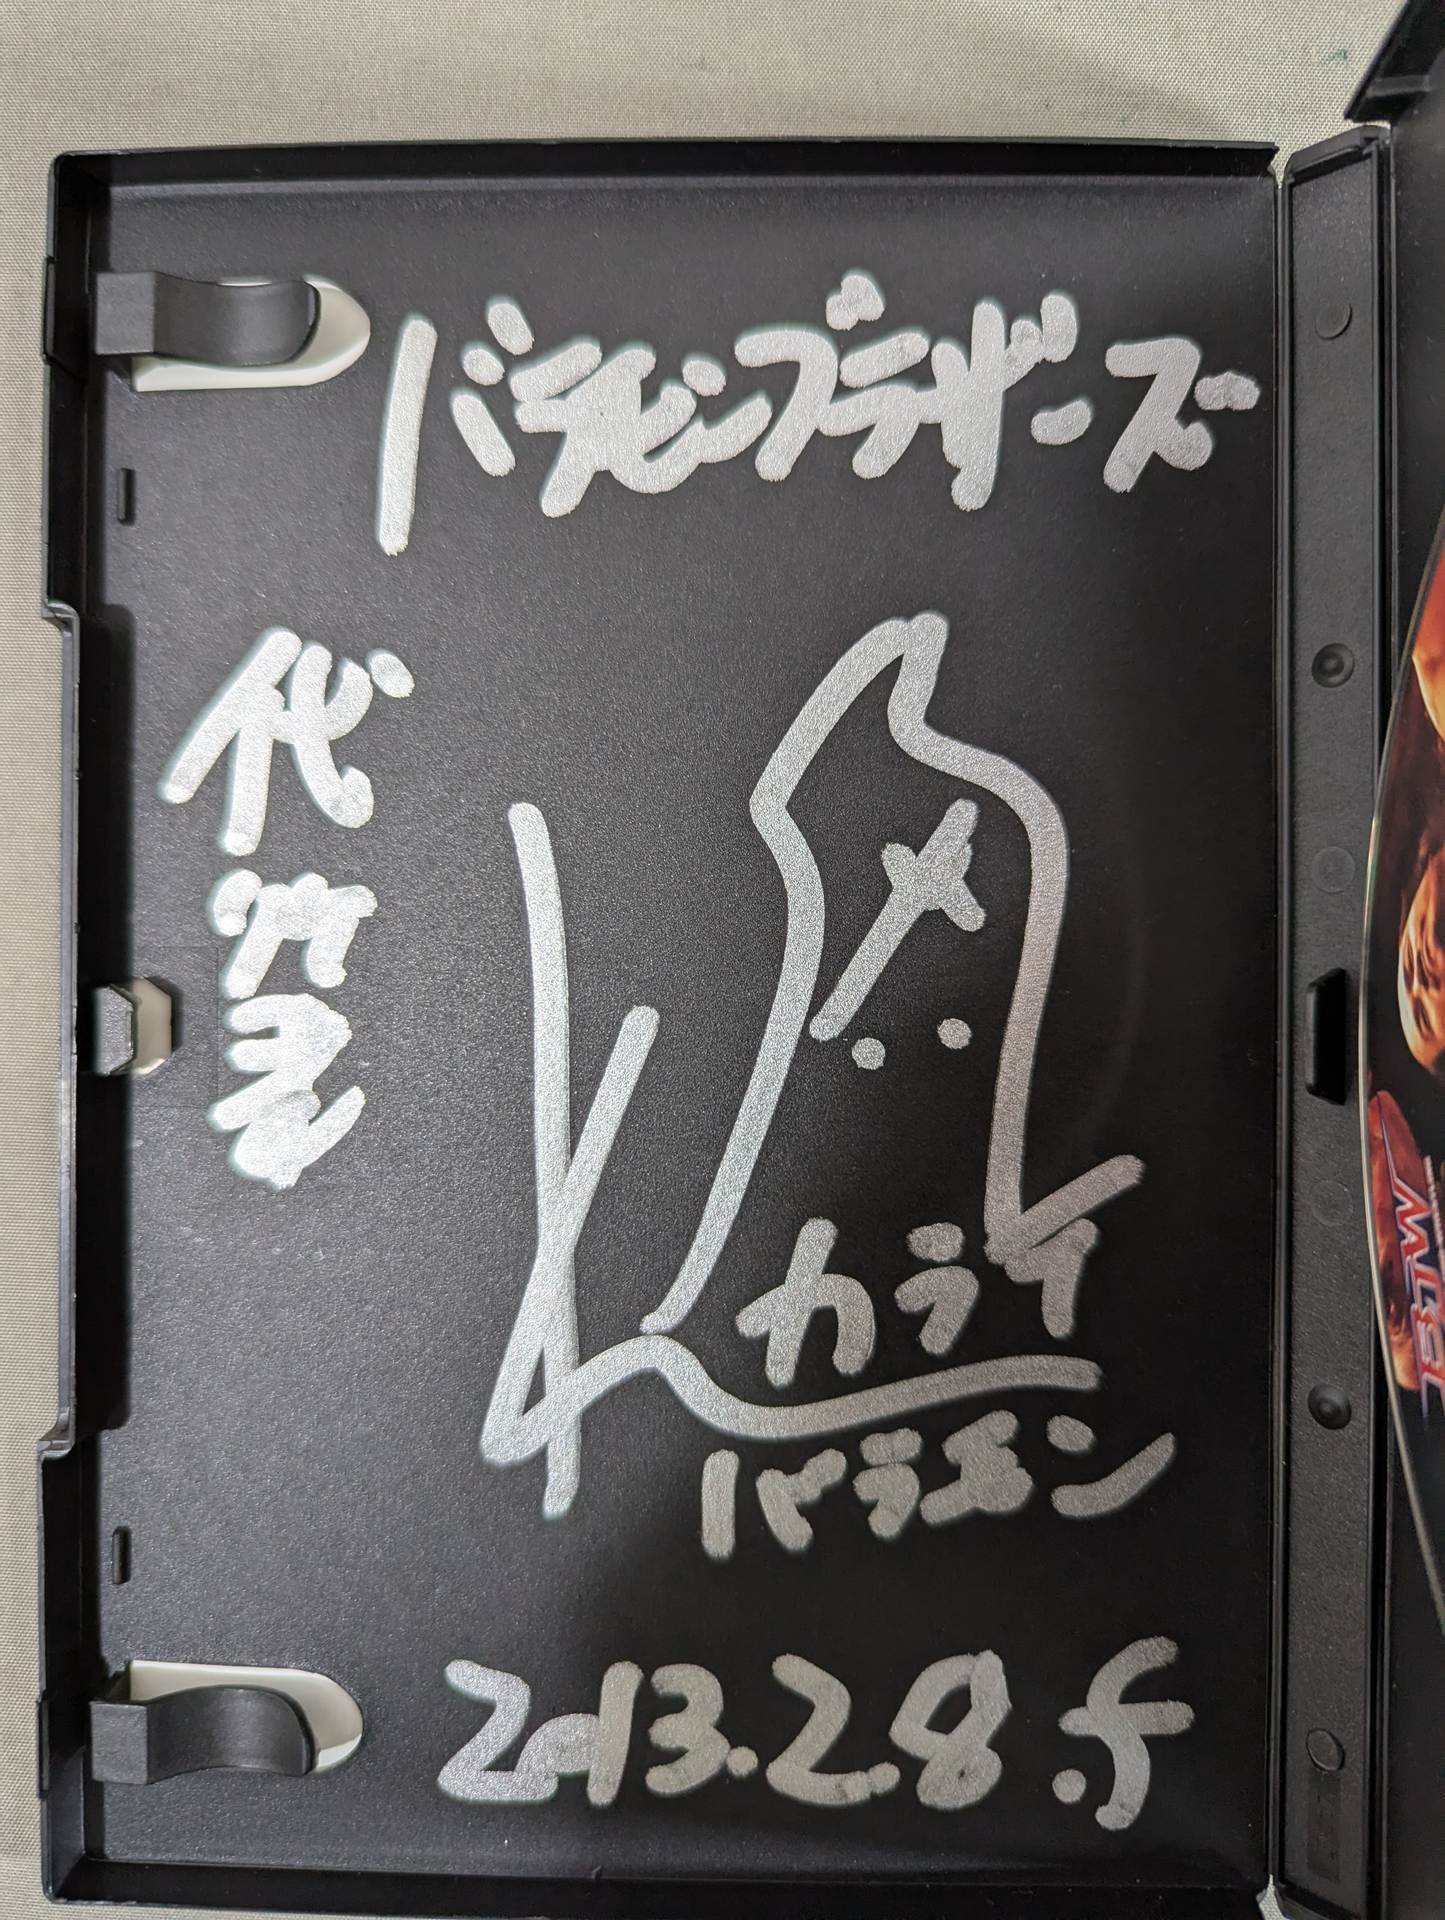 バラモンブラザーズ
代筆
カライ
バラモン
2013.2.8.f